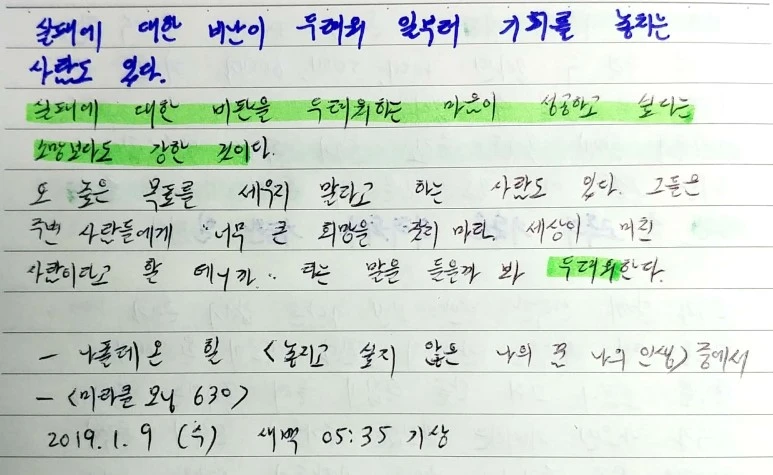 실패에 대한 비난이 두려워 일부러 기회를 놓치는
사람도 있다.
실패에 대한 비판을 두려워하는 마음이 성공하고 싶다는
소망보다도 강한 것이다.
또 높은 목표를 세우지 말라고 하는 사람도 있다. 그들은
주변 사람들에게 "너무 큰 희망을 갖지 마라. 세상이 미친
사람이라고 할 테니까." 라는 말을 들을까 봐 두려워한다.
- 나폴레온 힐 <놓치고 싶지 않은 나의 꿈 나의 인생> 중에서
- <미라클 모닝 630>
2019. 1. 9 (수) 새벽 05:35 기상